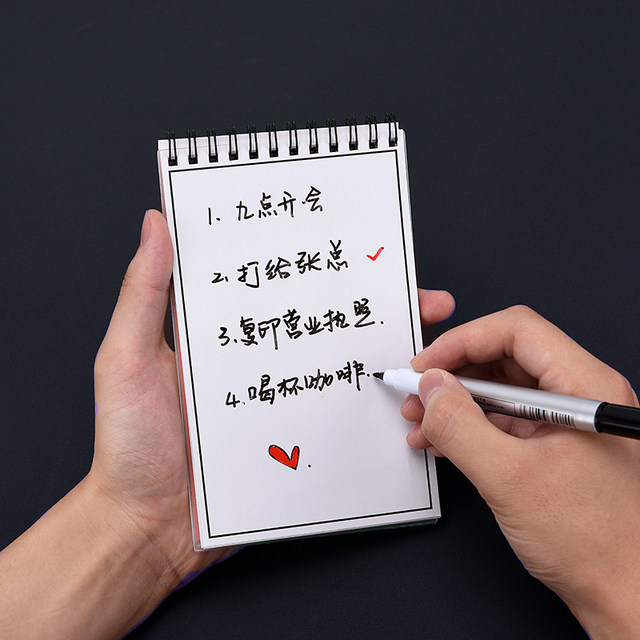 1. 九点开会
2. 打给张总 ✓
3. 复印营业执照.
4. 喝杯咖啡.